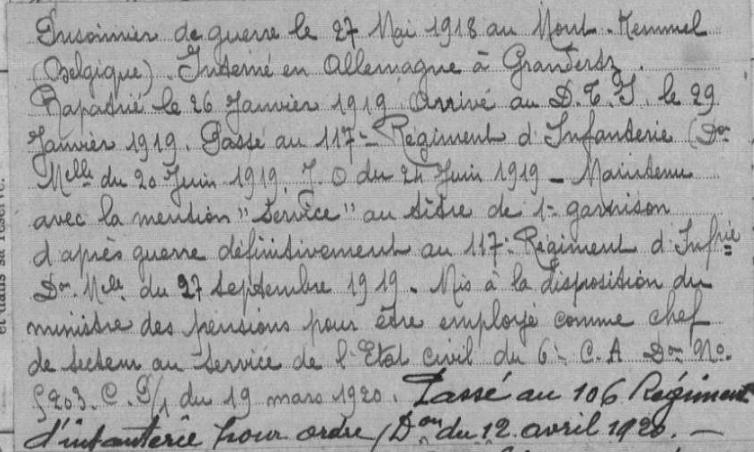 Prisonnier de guerre le 27 Mai 1918 au Mont-Kemmel
(Belgique). Interné en Allemagne à
Rapatrié le 26 Janvier 1919. Arrivé au D.T.I. le 29
Janvier 1919. Passé au 117e Régiment d'Infanterie (Don
Melle du 20 Juin 1919. J.O du 24 Juin 1919 - Maintenu
avec la mention "Service" au titre de 1e garnison
d'après guerre définitivement au 117e Régiment d'Infrie
Don Melle du 27 Septembre 1919. Mis à la disposition du
ministre des pensions pour être employé comme chef
de secteur au Service de l'Etat civil du 6e C.A Don No.
5203. C.P/1 du 19 mars 1920. Passé au 106 Régiment
d'infanterie pour ordre, Don du 12 avril 1920. -